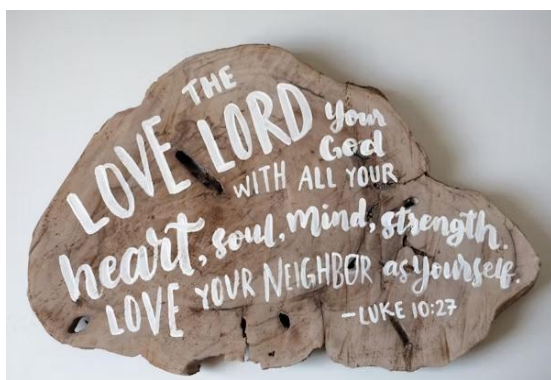 LOVE THE LORD Your God
WITH ALL YOUR
heart, soul, mind, strength.
LOVE YOUR NEIGHBOR as yourself.
–LUKE 10:27